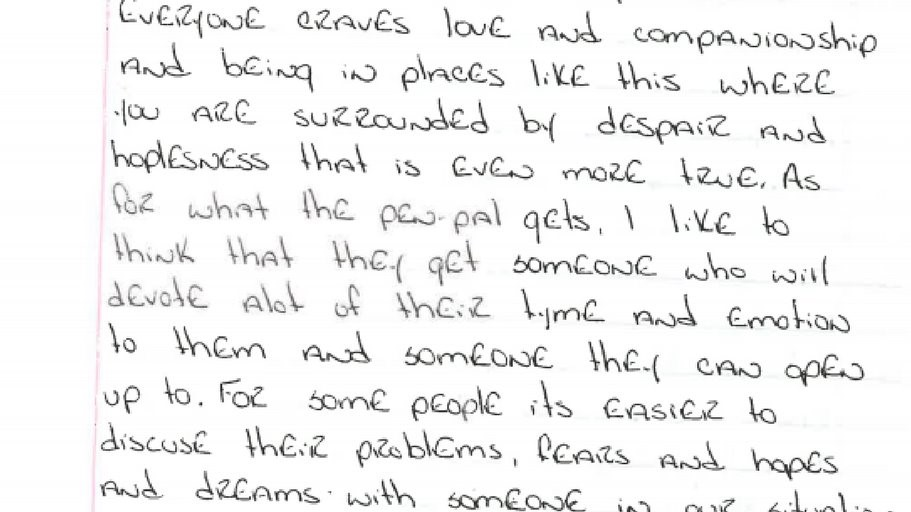 EVERYONE CRAVES love AND compANionship
ANd bEiNg iN plAcES likE this whERE
you ARE surrounded by dESpAiR AND
hoplESNESS that is EVEN moRE truE. As
foR what thE pEN-pAl gEts, I likE to
thiNk that thEy gEt somEONE who will
dEvotE Alot of thEiR tymE AND EmotioN
to thEm AND somEONE thEy CAN opEN
up to. FoR somE pEoplE its EASiER to
discusE thEiR pRoblEms, fEARS AND hopES
AND dREAms with somEONE iN ouR